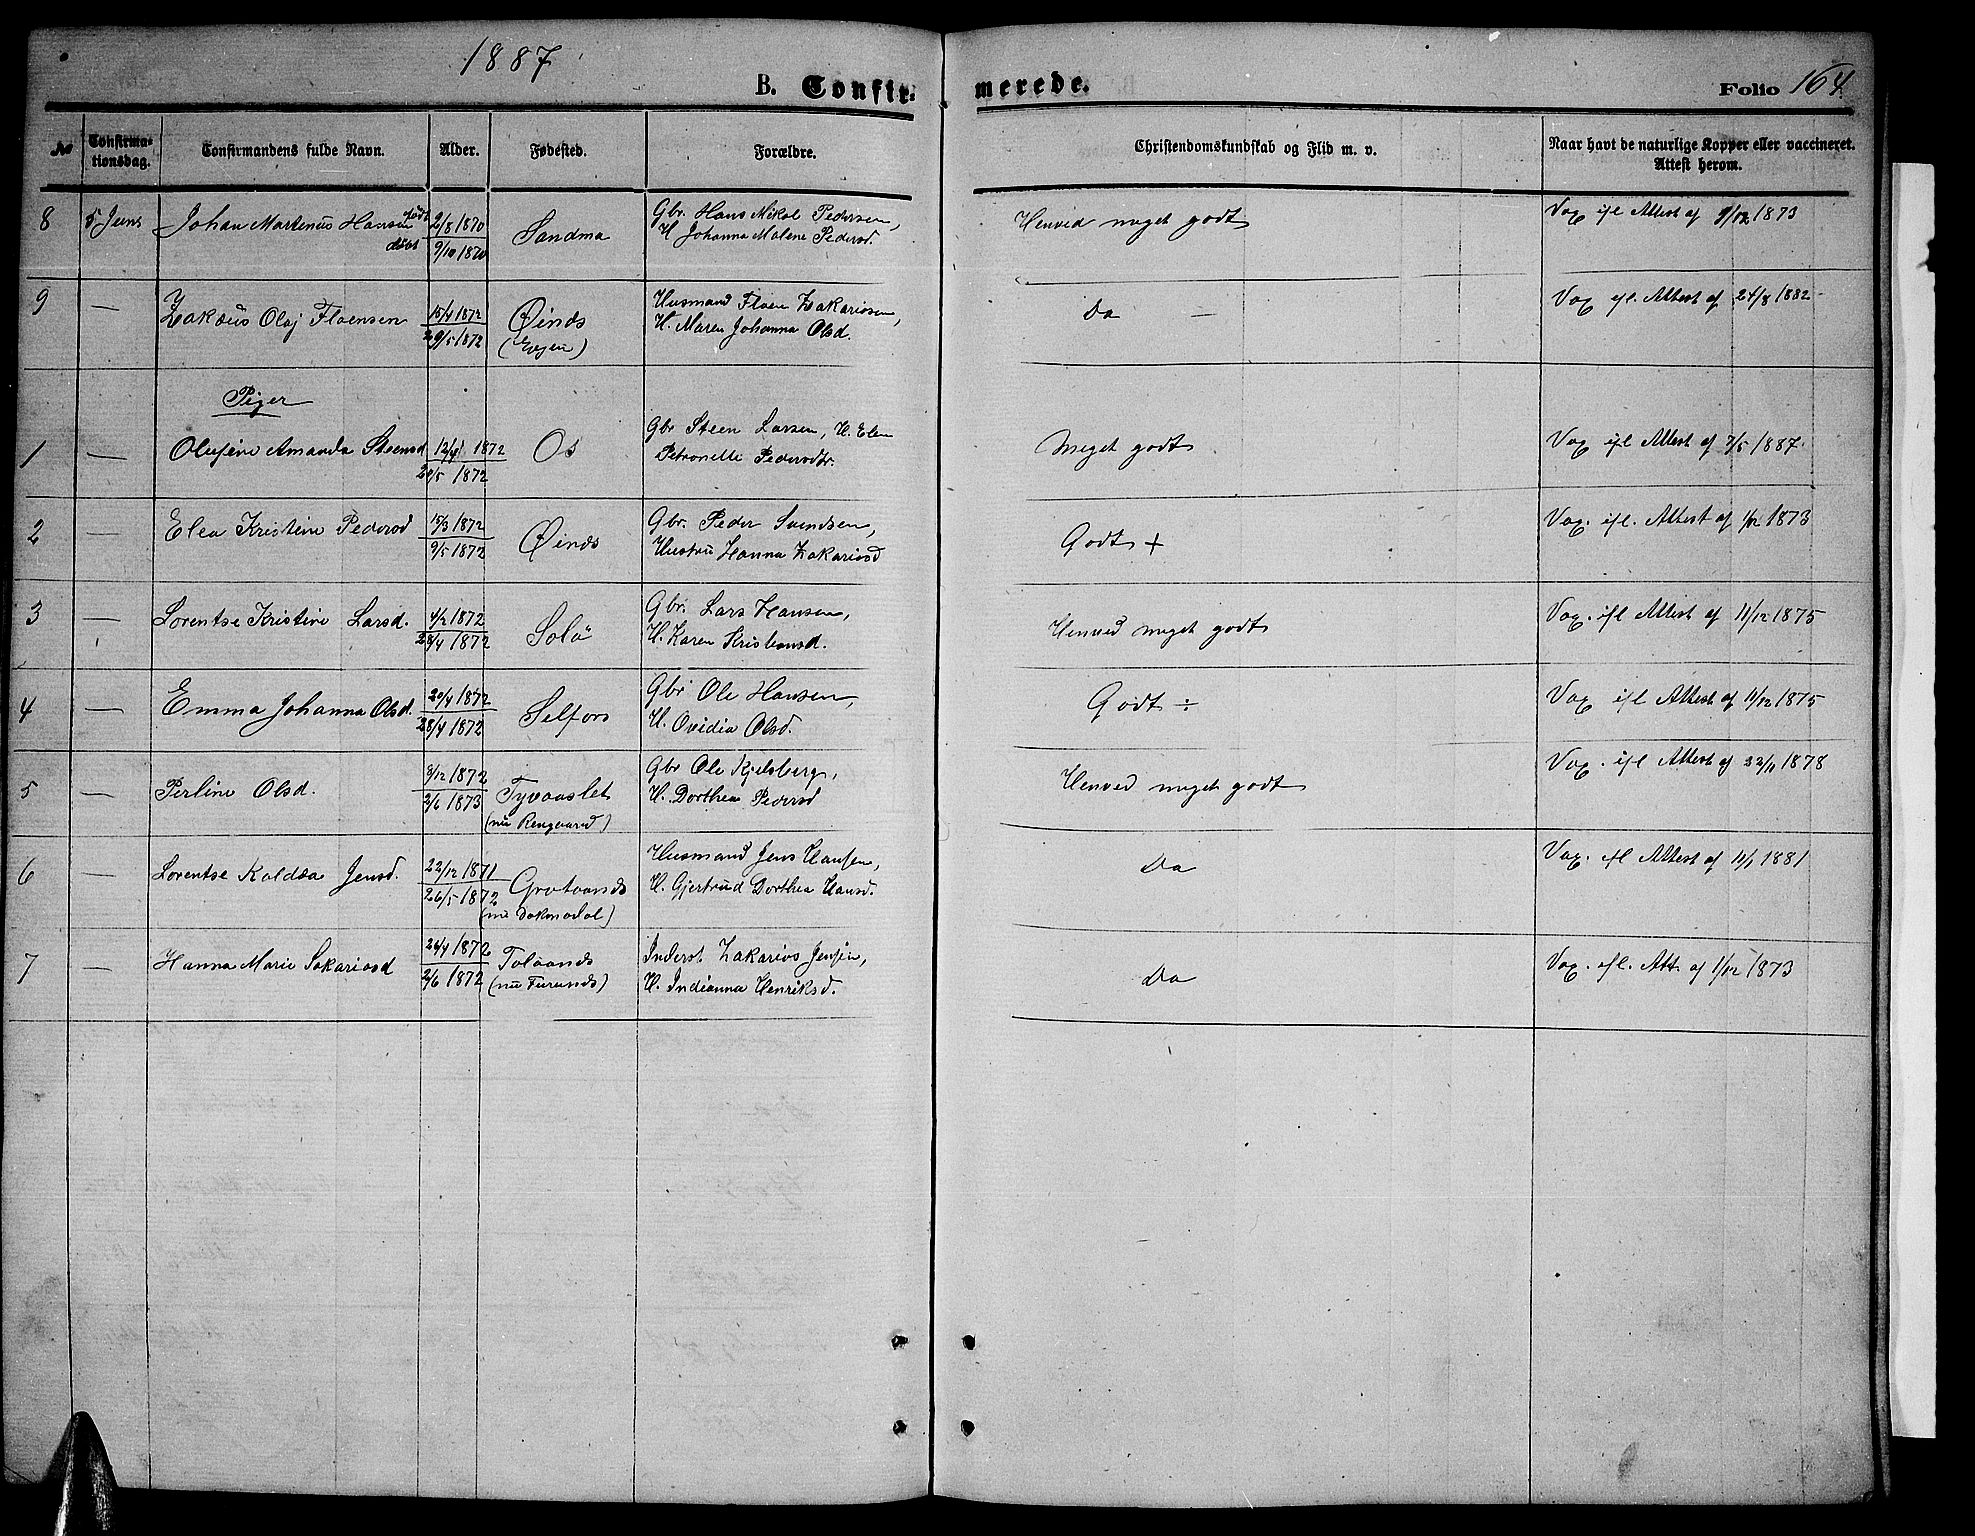 1887
B. Confirmerede.
Folio 164.
No Confirmationsdag. Confirmandens fulde Navn. Alder. Fødested. Forældre. Christendomskundskab og Flid m. v. Naar havt de naturlige Kopper eller vaccineret. Attest herom.
8 5 Juni Johan Martenus Hansen født 2/8 1870 Sandma Gbr. Hans Mikal Pedersen, Henved meget godt Vax ifl Attest af 9/12 1873
døbt 9/10 1870 H. Johanna Malene Pedersd.
9 — Zakæus Olaj Floensen 15/4 1872 Øinds Husmand Floen Zakariasen, Do — Vax ifl. Attest af 24/8 1882
29/5 1872 (Evjen) H. Maren Johanna Olsd.
Piger
1 — Olufine Amanda Steensd 12/4 1872 Os Gbr Steen Larsen, H. Elen Meget godt Vax ifl Attest af 7/5 1887.
20/5 1872 Petronelle Pedersdtr.
2 — Elea Kristine Pedersd 15/3 1872 Øinds Gbr. Peder Svendsen, Godt + Vax. ifl. Attest af 1/12 1873
9/5 1872 Hustru Hanna Zakariasd
3 — Lorentse Kristine Larsd. 4/2 1872 Solö Gbr. Lars Hansen, Henved meget godt Vax. ifl Attest af 11/12 1875
28/4 1872 H. Karen Kristiansd.
4 — Emma Johanna Olsd. 20/4 1872 Selfors Gbr Ole Hansen, Godt ÷ Vax ifl Attest af 11/12 1875
28/4 1872 H. Ovidia Olsd.
5 — Perline Olsd. 8/12 1872 Tyvaaslet Gbr Ole Kjelsberg, Henved meget godt Vax. ifl Attest af 22/11 1878
2/6 1873 (nu Rengaard) H. Dorthea Pedersd
6 — Lorentse Kaldea Jensd. 22/12 1871 Grotaands Husmand Jens Hansen, Do Vax. ifl Attest af 11/1 1881
26/5 1872 (nu Dokmodal) H. Gjertrud Dorthea Hansd.
7 — Hanna Marie Sakariasd 24/4 1872 Tolaands Inderst Zakarias Jensen, Do Vax. ifl. Att. af 1/12 1873
2/6 1872 (nu Furunds) H. Indianna Henriksd.